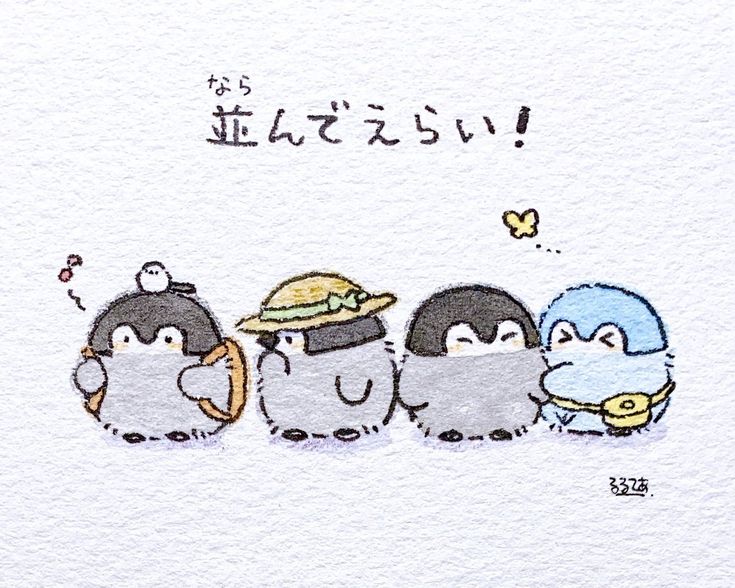 なら
並んでえらい!
るるてあ.